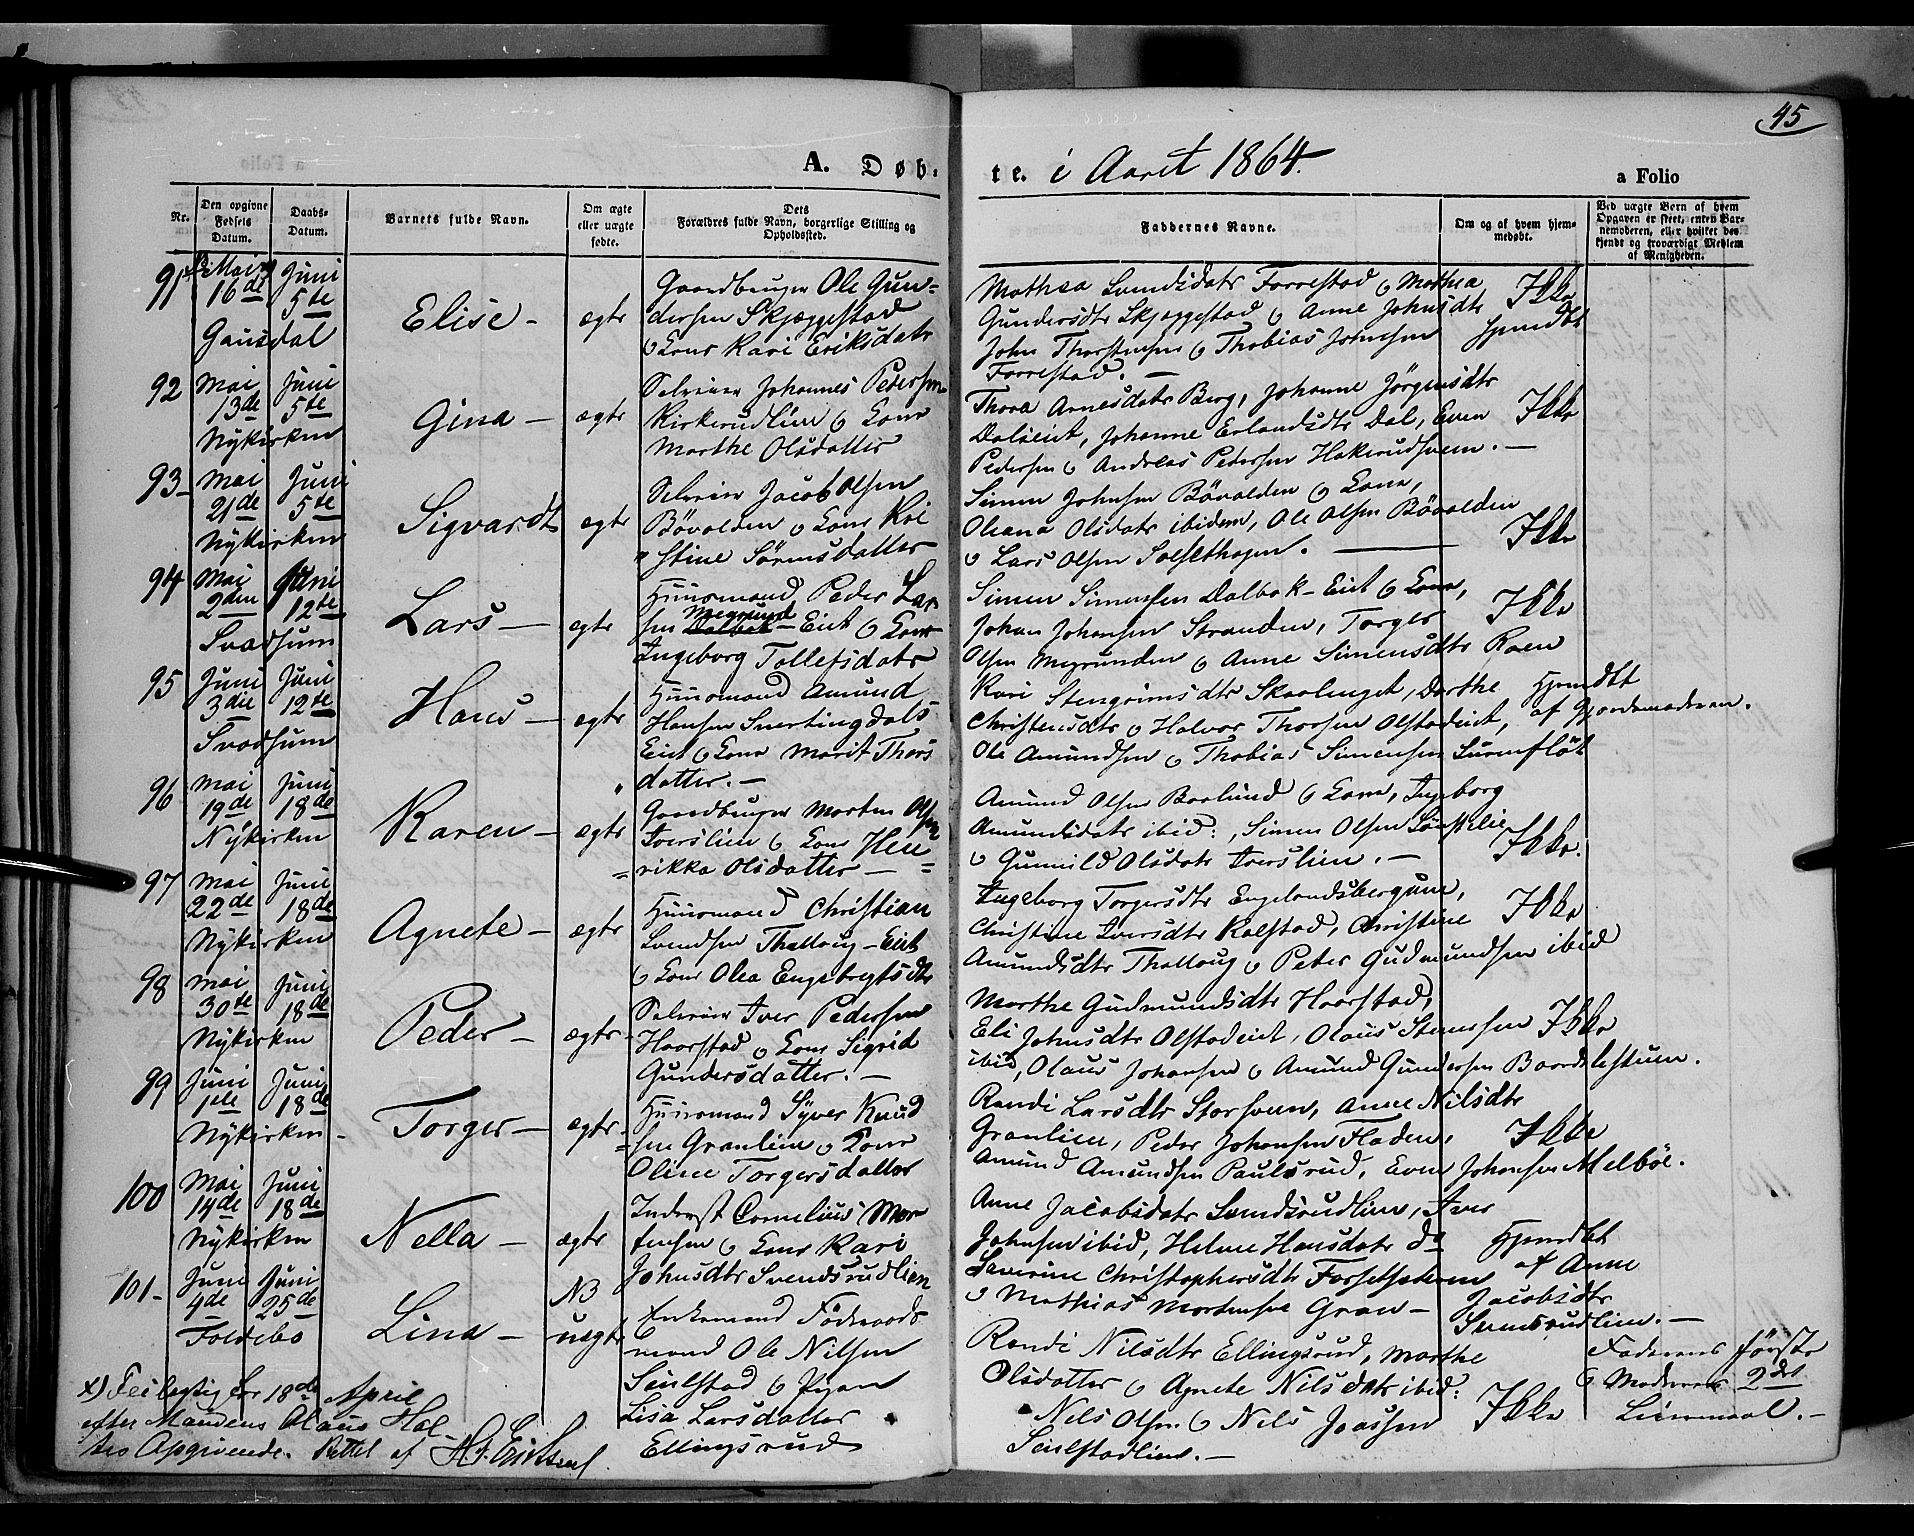 45
A. Døb-
te. i Aaret 1864.
a Folio
Nr.
Den opgivne Fødsels Datum.
Daabs-Datum.
Barnets fulde Navn.
Om ægte eller uægte fødte.
Dets Forældres fulde Navn, borgerlige Stilling og Opholdssted.
Faddernes Navne.
Om og af hvem hjemmedøbt.
Ved uægte Børn af hvem Opgaven er skeet, enten Barnemoderen, eller hvilket bekjendt og troværdigt Medlem af Menigheden.
91 Mai 16de Juni 5te
Gausdal
Elise –
ægte
Gaardbruger Ole Gun-
dersen Skjæggestad
& Kone Kari Eriksdatr
Mathea Svendsdatr Forrestad & Mathea
Gundersdtr Skjæggestad & Anne Johnsdtr
John Thorstensen & Thobias Johnsen
Forrestad. –
Ikke
hjemdbt
92 Mai 13de Juni 5te
Nykirken
Gina –
ægte
Selveier Johannes Pedersen
Kirkerudlien & Kone
Marthe Olsdatter
Thora Arnesdatr Berg, Johanne Jörgensdtr
Dalseiet, Johanne Erlandsdtr Dal, Even
Pedersen & Andreas Pedersen Hakerudsveen. –
Ikke
93 – Mai 21de Juni 5te
Nykirken
Sigvardt
ægte
Selveier Jacob Olsen
Bövolden & Kone Kri
" stine Sörensdatter
Simen Johnsen Bövolden & Kone,
Oleana Olsdatr ibidem, Ole Olsen Bövolden
& Lars Olsen Solslethagen. –
Ikke
94 Mai 2den Juni 12te
Svadsum
Lars –
ægte
Huusmand Peder Lar
sen Megrund Dalbak – Eiet & Kone
Ingeborg Tollefsdatr
Simen Simensen Dalbak – Eiet & Kone,
Johan Johansen Stranden, Torger
Olsen Megrunden & Anne Simensdtr Roen
Ikke
95 Juni 3die Juni 12te
Svadsum
Hans –
ægte
Huusmand Amund
Hansen Svertingdals
Eiet & Kone Marit Thors
" datter. –
Kari Stengrimsdtr Skaalenget, Dorthe
Christensdtr & Halvor Thorsen Olstadeiet,
Ole Amundsen & Thobias Simensen Surenflöt
Hjemdbt
af Gjordemoderen.
96 Mai 19de Juni 18de
Nykirken
Karen –
ægte
Gaardbruger Morten Olsen
Iverslien & Kone Hen
= rikka Olsdatter – =
Amund Olsen Baalund & Kone, Ingeborg
Amundsdatr ibid:, Simen Olsen
& Gunnild Olsdatr Iverslien. –
Ikke.
97 Mai 22de Juni 18de
Nykirken
Agnete –
ægte
Huusmand Christian
Svendsen Thallaug – Eiet
& Kone Olea Engebregtsdtr
Ingeborg Torgersdtr Engelandsbergum,
Christine Iversdtr Kalstad, Christine
Amundsdtr Thallaug & Peter Gudmundsen ibid
Ikke
98 Mai 30te Juni 18de
Nykirken
Peder –
ægte
Selveier Iver Pedersen
Haarstad & Kone Sigrid
Gundersdatter. –
Marthe Gudmundsdtr Haarstad,
Eli Johnsdtr Olstadeiet, Olaus Stensen
ibid, Olaus Johansen & Amund Gundersen Baardslistuen.
Ikke
99 Juni 1ste Juni 18de
Nykirken –
Torger –
ægte
Huusmand Syver Knud
= sen Granlien & Kone
Oline Torgersdatter
Randi Larsdtr Storsveen, Anne Nilsdtr
Granlien, Peder Johansen Fladen,
Amund Amundsen Paulsrud, Even Johansen Melböe.
Ikke
100 Mai 14de Juni 18de
Nykirken
Nella –
ægte
Inderst Cornelius Mor
tensen & Kone Kari
Johnsdtr Svendsrudlien
Anne Jacobsdatr Svendsrudlien, Iver
Johnsen ibid, Helene Hansdatr do
Severine Christophersdtr Forsetsæteren
& Mathias Mortensen Gran –
Hjemdbt
af Anne
Jacobsdtr
Svendsrudlien. –
101 – Juni 4de Juni 25de
Follebo
Lina –
NB
uægte
Enkemand Föderaads
mand Ole Nilsen
Seielstad & Pigen
Lisa Larsdatter
Ellingsrud
Randi Nilsdtr Ellingsrud, Marthe
Olsdatter & Agnete Nilsdatr ibid:
Nils Olsen & Nils Joassen
Seielstadlien. –
Ikke
Faderens förste
& Moderens 2det
Leiermaal. –
x) Feilagtig for 18de April
efter Mandens Olaus Hol
tes Opgivende. Rettet af H. J. Erichsen